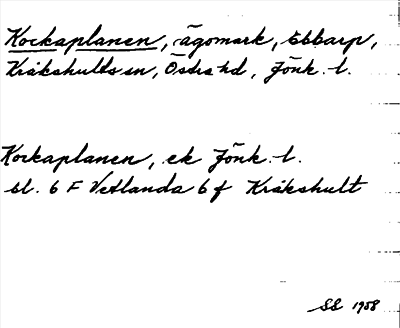 Kockaplanen, ägomark, Ebbarp,
Kråkshults sn, Östra hd, Jönk. l.
Kockaplanen, ek Jönk. l.
bl. 6 F Vetlanda 6 f Kråkshult
SS 1988